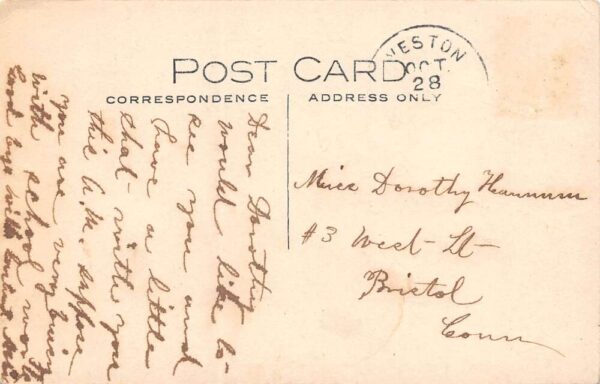 POST CARD
CORRESPONDENCE
ADDRESS ONLY
WESTON
OCT
28
Dear Dorothy
would like to
see you and
have a little
chat with you
this A.M. suppose
you are very busy
with school work
Good bye with
Miss Dorothy Hannum
#3 West St
Bristol
Conn